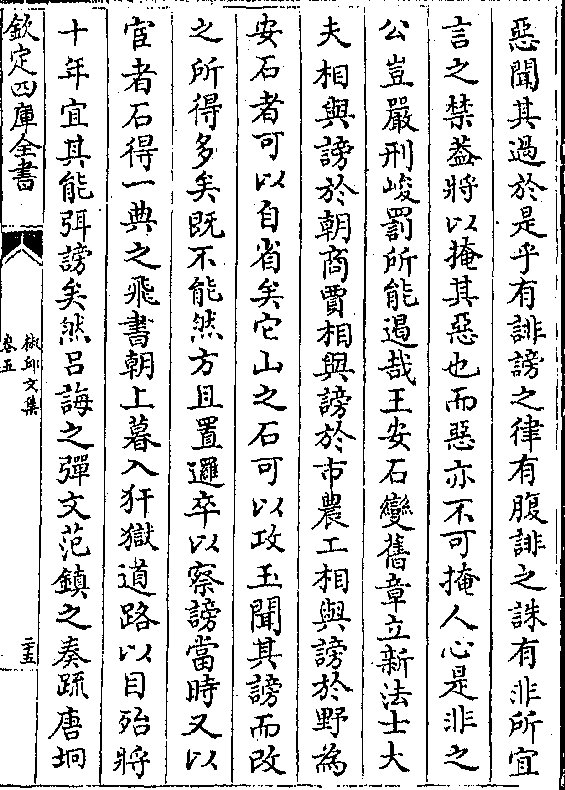 惡聞其過於是乎有誹謗之律有腹誹之誅有非所宜
言之禁葢將以掩其惡也而惡亦不可掩人心是非之
公豈嚴刑峻罰所能遏哉王安石變舊章立新法士大
夫相與謗於朝商賈相與謗於市農工相與謗於野為
安石者可以自省矣它山之石可以攻玉聞其謗而改
之所得多矣既不能然方且置邏卒以察謗當時又以
宦者石得一典之飛書朝上暮入犴獄道路以目殆將
十年宜其能弭謗矣然吕誨之彈文范鎮之奏疏唐坰
欽定四庫全書
椒邱文集
卷五
二五